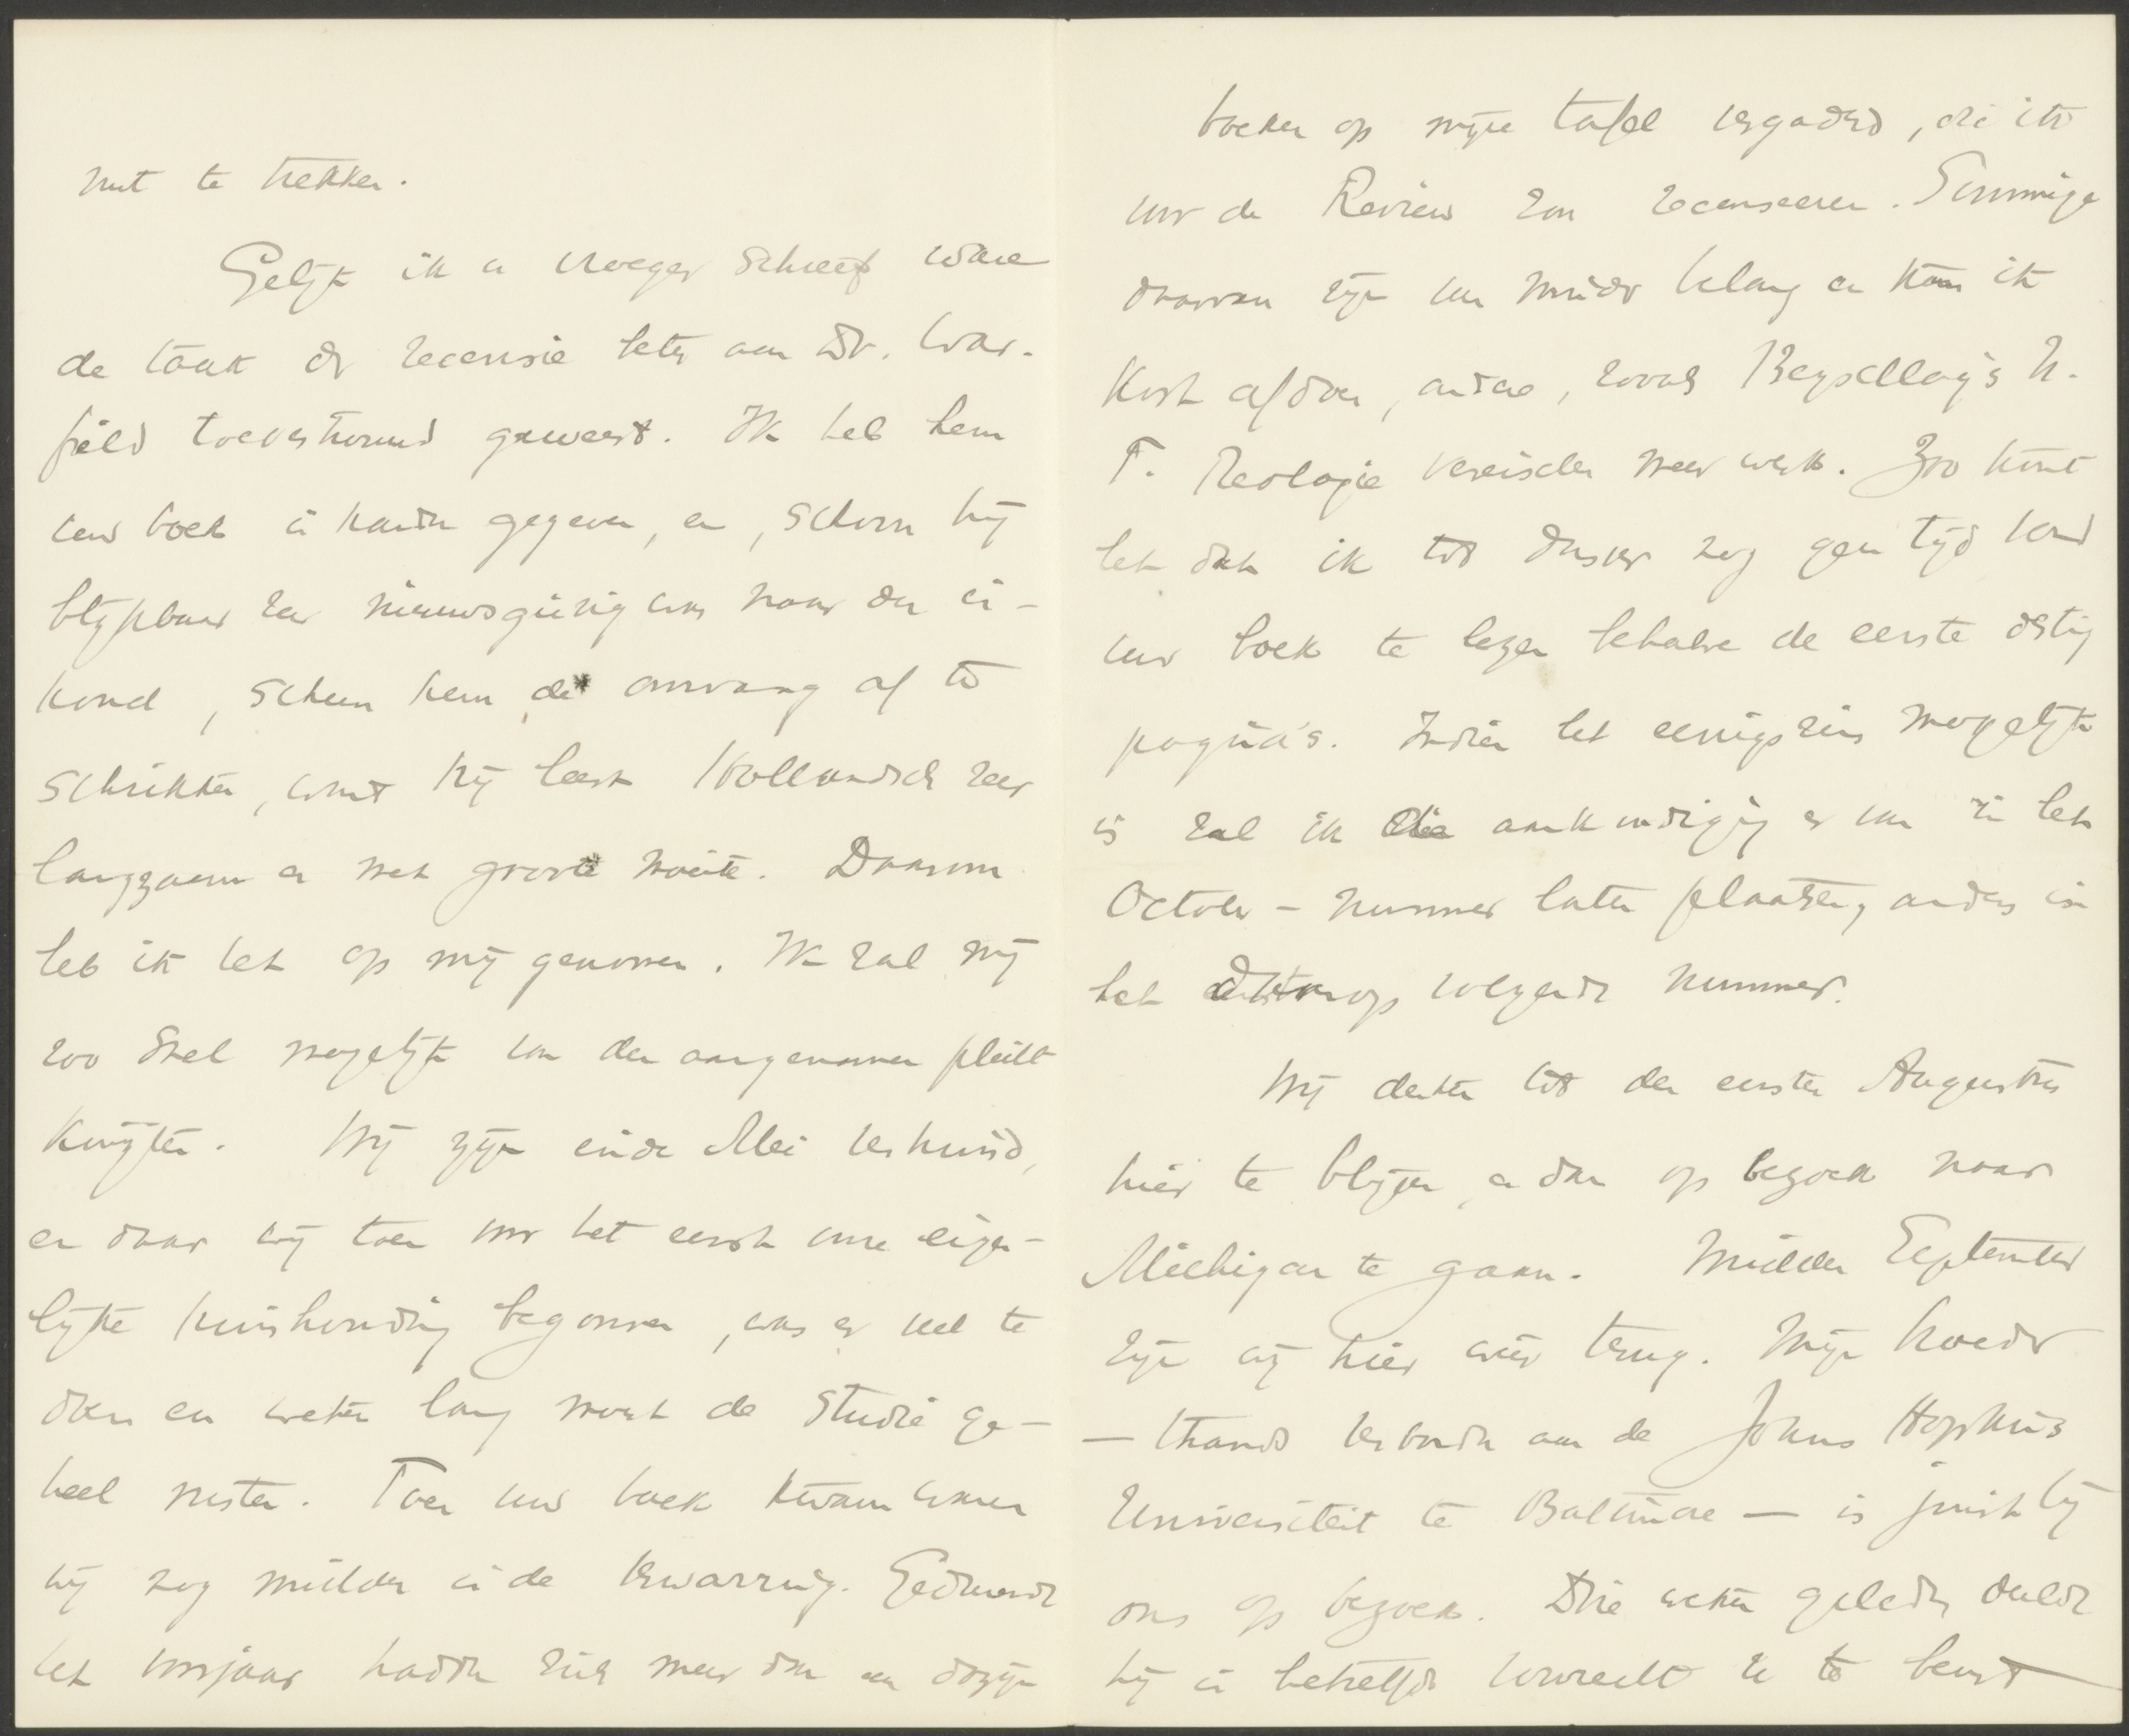 nut te trekken.
Gelijk ik u vroeger schreef ware
de taak der recensie beter aan Dr. War-
field toevertrouwd geweest. Ik heb hem
uw boek in handen gegeven, en, schoon hij
blijkbaar zeer nieuwsgierig was naar den in-
houd, scheen hem de omvang af te
schrikken, want hij leest Hollandsch zeer
langzaam en met groote moeite. Daarom
heb ik het op mij genomen. Ik zal mij
zoo snel mogelijk van den aangenamen plicht
kwijten. Wij zijn einde Mei verhuisd,
en daar wij toen voor het eerst onze eigen-
lijke huishouding begonnen, was er veel te
doen en weken lang moest de studie ge-
heel rusten. Toen uw boek kwam waren
wij nog midden in de verwarring. Gedurende
het voorjaar hadden zich meer dan een dozijn
boeken op mijne tafel vergaderd, die ik
voor de Review zou recenseeren. Sommige
daarvan zijn van minder belang en kan ik
kort afdoen, andere, zooals Beyschlag's N.
T. Theologie vereischen meer werk. Zoo komt
het dat ik tot dusver nog geen tijd vond
uw boek te lezen behalve de eerste dertig
pagina's. Indien het eenigszins mogelijk
is zal ik de aankondiging er van in het
October - nummer laten plaatsen, anders in
het daarop volgende nummer.
Wij denken tot den eersten Augustus
hier te blijven en dan op bezoek naar
Michigan te gaan. Midden September
zijn wij hier weer terug. Mijn broeder
— thans verbonden aan de Johns Hopkins
Universiteit te Baltimore — is juist bij
ons op bezoek. Drie weken geleden deelde
hij in hetzelfde voorrecht u te beurt